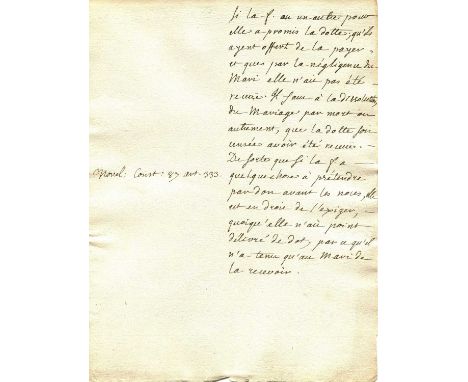 Si la f. ou un autre pour
elle a promis la dotte, qu'ils
ayent offert de la payer,
et que par la négligence du
Mari elle n'ait pas été
recüe. Il faut à la dissolution
du Mariage par mort ou
autrement, que la dotte soit
censée avoir été recüe. -
De sorte que si la f. a
Novel: Const: 87 art. 333. quelque chose à prétendre
par don avant les noces, elle
est en droit de l'exiger, -
quoiqu'elle n'ait point
délivré de dot, par ce qu'il
n'a tenu qu'au Mari de
la recevoir.